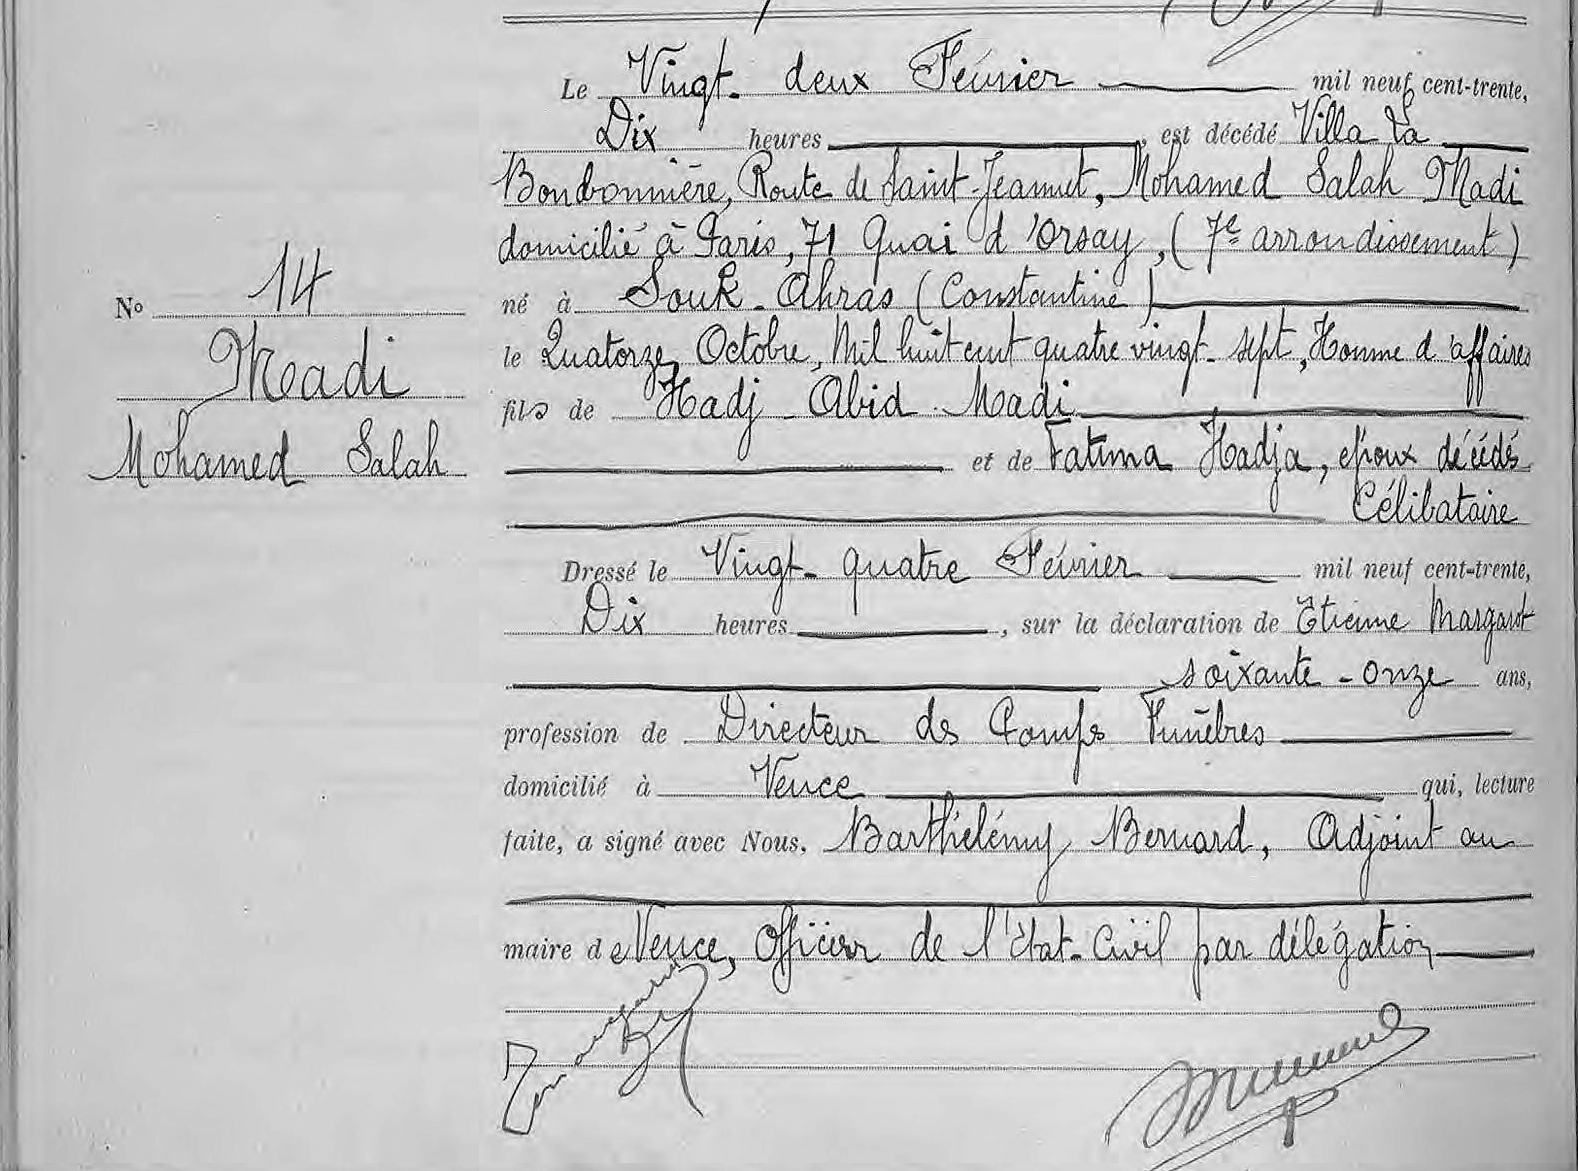 Le Vingt-deux Février mil neuf cent-trente,
Dix heures, est décédé Villa La
Bonbonnière, Route de Saint-Jeannet, Mohamed Salah Madi
domicilié à Paris, 71 Quai d'Orsay, (7e arrondissement)
No 14
né à Souk-Ahras (Constantine)
Madi
le Quatorze Octobre, Mil huit cent quatre vingt-sept, Homme d'affaires
fils de Hadj Abid Madi
Mohamed Salah
et de Fatima Hadja, époux décédés
Célibataire
Dressé le Vingt-quatre Février mil neuf cent-trente,
Dix heures, sur la déclaration de Etienne Margarot
soixante-onze ans,
profession de Directeur des Pompes Funèbres
domicilié à Vence qui, lecture
faite, a signé avec Nous, Barthélémy Bernard, Adjoint au
maire de Vence, Officier de l'Etat-Civil par délégation